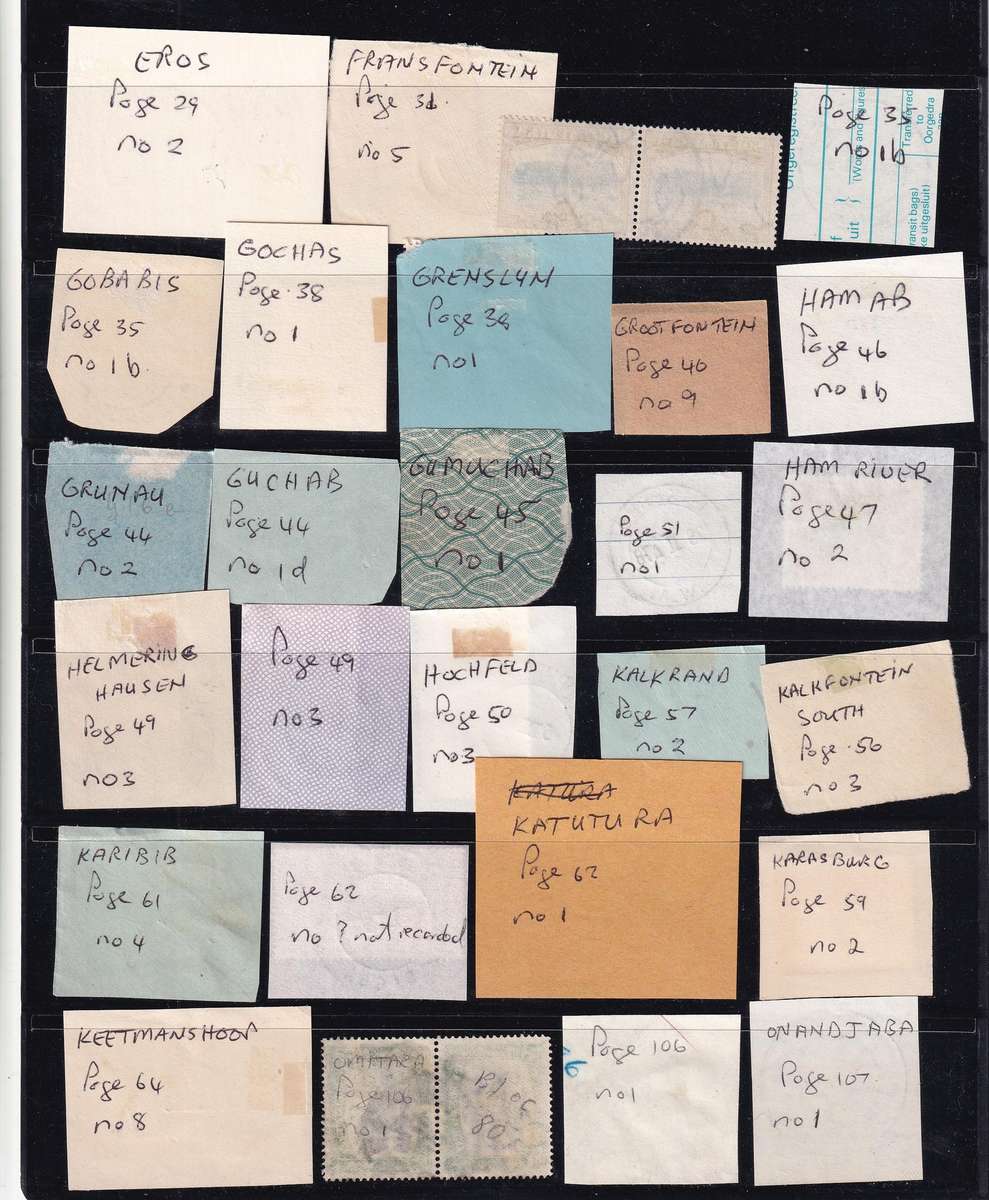 EROS
Page 29
no 2
FRANSFONTEIN
Page 31.
no 5
Page 35
no 1b
Ongeregistree
uit
(Words and figures
Transferred
to
Oorgedra
ransit bags)
ke uitgesluit)
GOBABIS
Page 35
no 1b.
GOCHAS
Page. 38
no 1
GRENSLYN
Page 38
no1
GROOTFONTEIN
Page 40
no 9
HAM AB
Page 46
no 1b
GRUNAU
Page 44
no 2
GUCHAB
Page 44
no 1d
GUMUCHAB
Page 45
no 1
Page 51
no1
HAM RIVER
Page 47
no 2
HELMERING
HAUSEN
Page 49
no3
Page 49
no3
HOCHFELD
Page 50
no3
KALKRAND
Page 57
no 2
KALKFONTEIN
SOUTH
Page .56
no 3
KATUTURA
Page 62
no 1
KARIBIB
Page 61
no 4
Page 62
no ? not recorded
KARASBURG
Page 59
no 2
KEETMANSHOOP
Page 64
no 8
Page 106
no 1
80
Page 106
no1
ONANDJABA
Page 107
no 1